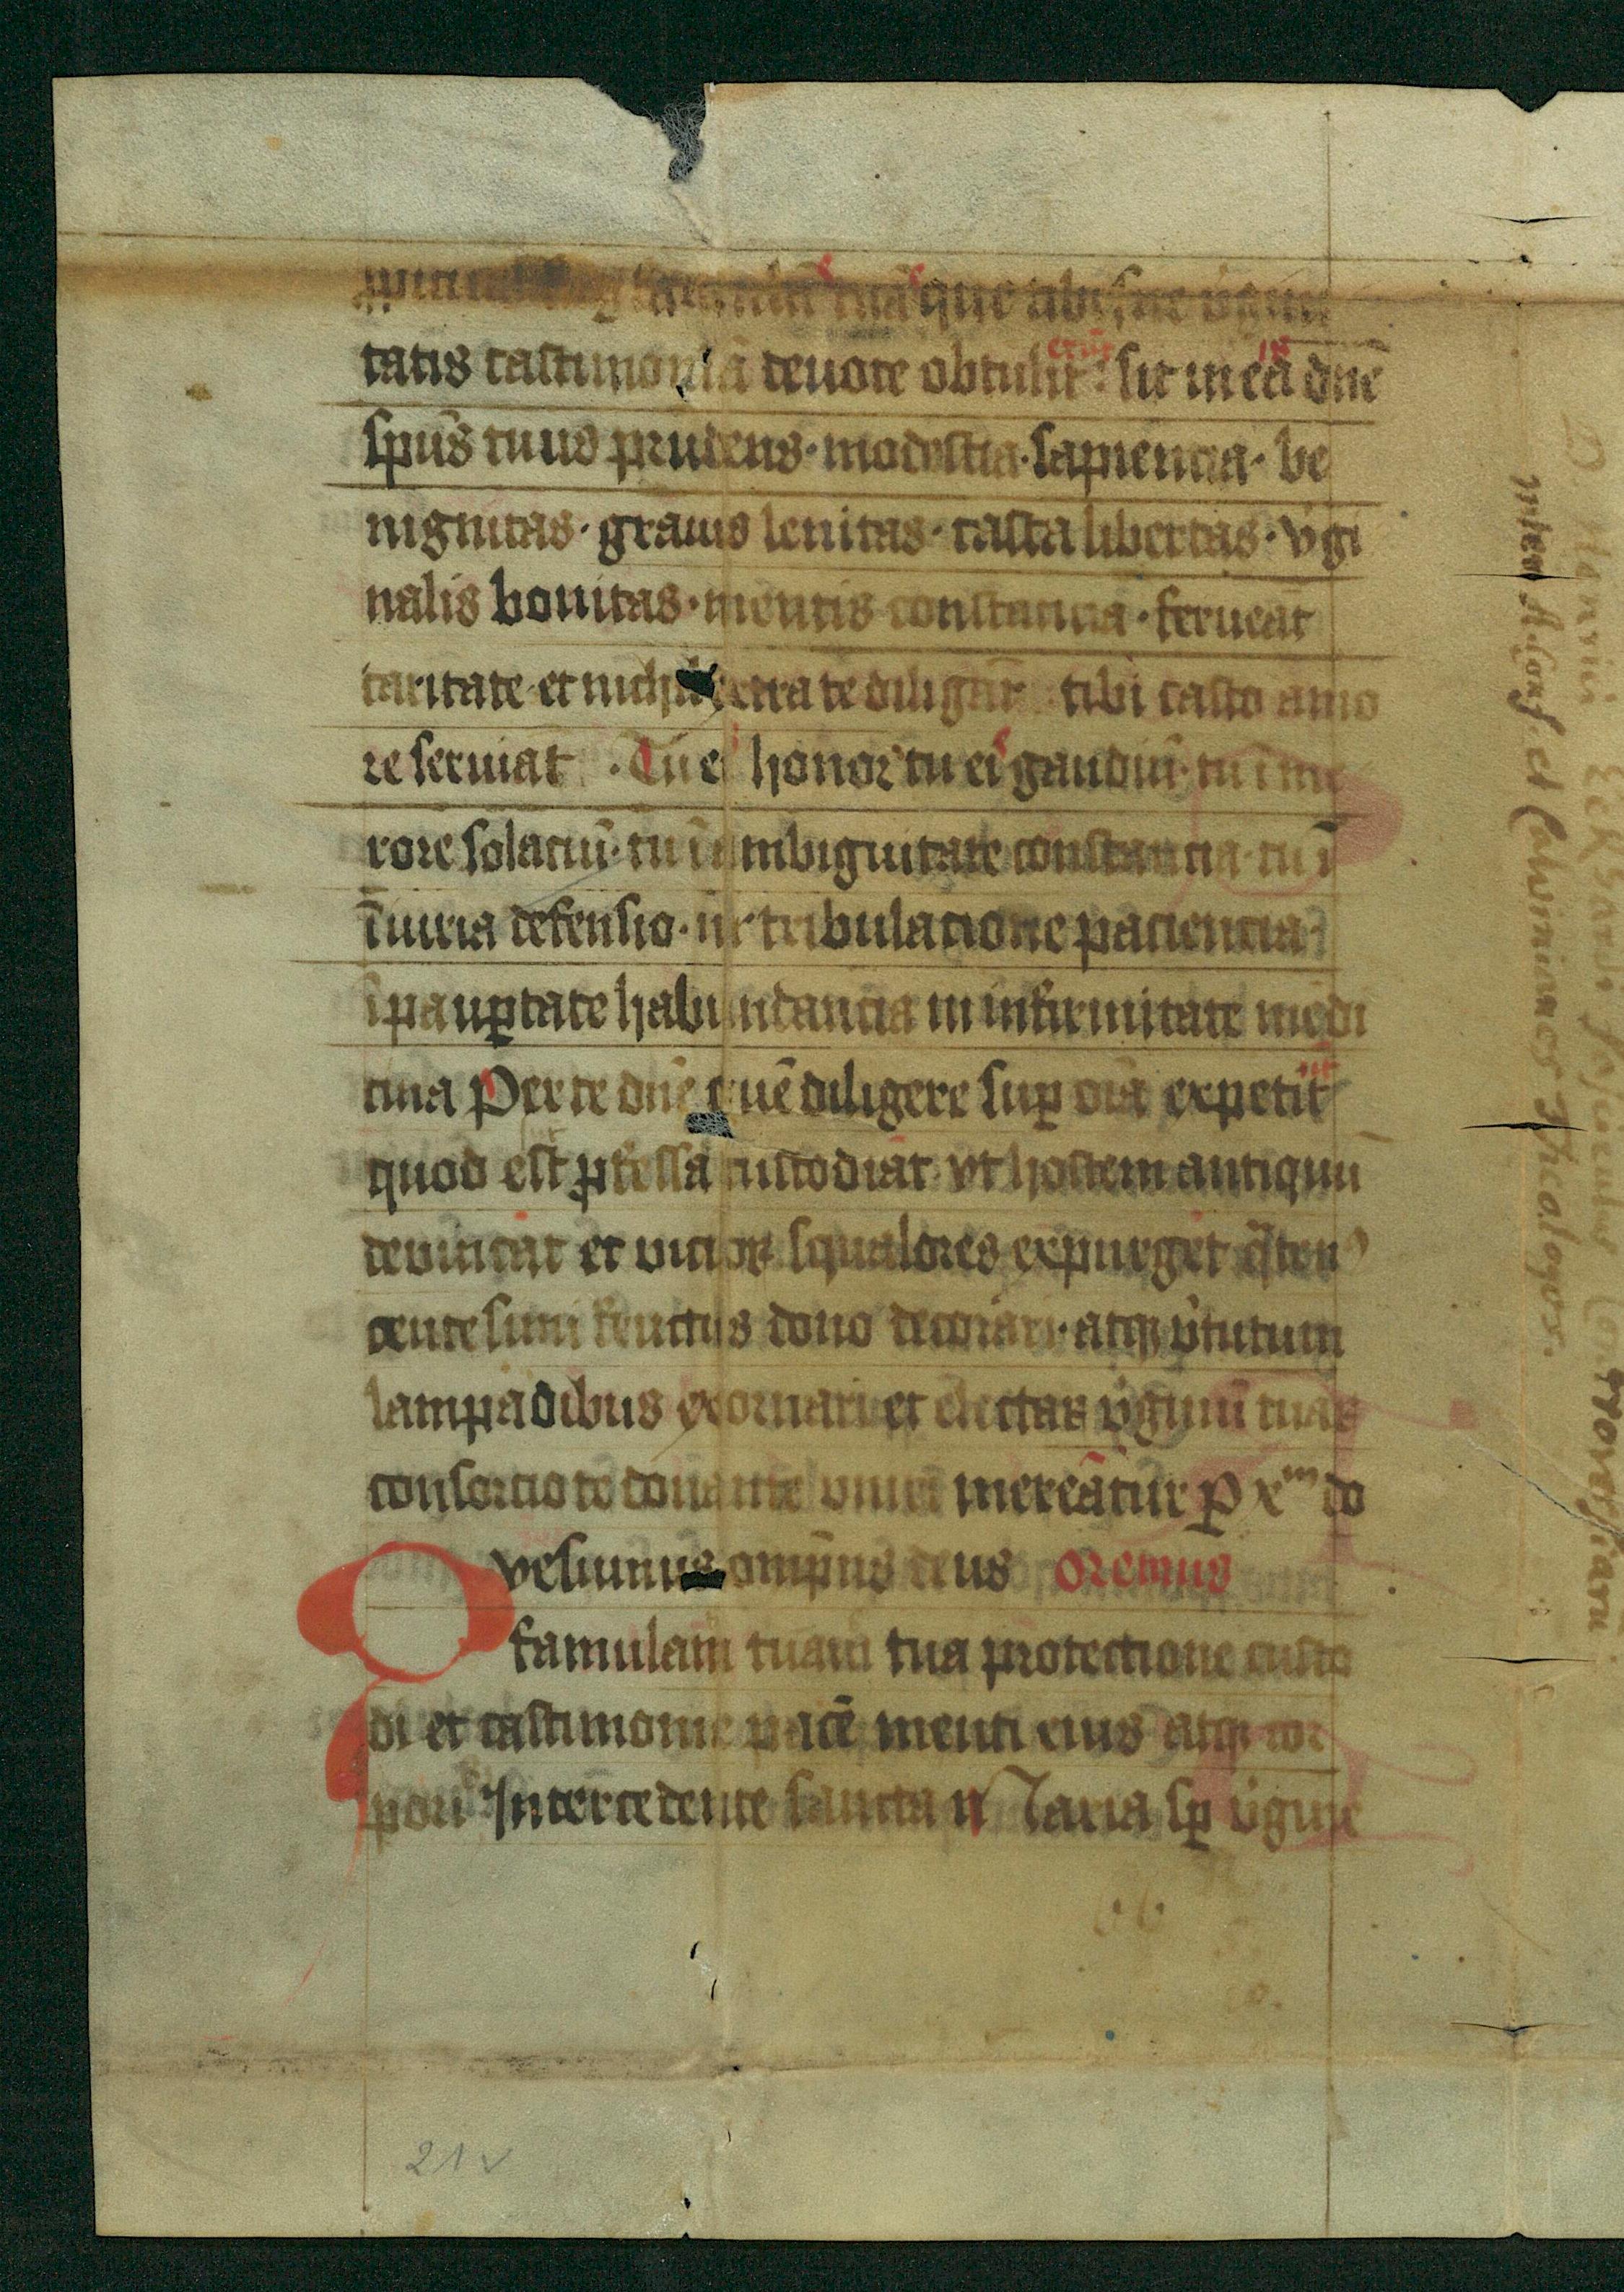 famulā tuā que tibi sue v̓gini
tatis castimoniā deuote obtulit sit in ea dn̄e
sp̄us tuus prudens · modestia · sapiencia · be
nignitas · grauis lenitas · casta libertas · v̓gi
nalis bonitas · mentis constancia · ferueat
caritate et nichil extra te diligat tibi casto amo
re seruiat · Tu ei honor tu ei gaudiū · tu ī me
rore solaciū · tu ī ambiguitate constancia · tu ī
īiuria defensio · in tribulacione paciencia
ī paup̱tate habundancia in infirmitate medi
cina Per te dn̄e quē diligere sup̱ oīa expetit
quod est p̱fessa custodiat · vt hostem antiquū
deuincat et vicioꝝ squalores expurget q̄ten⁹
centesimi fructus dono decorari · atqꝫ v̓tutum
lampadibus exornari et electaꝝ v̓ginū tuaꝝ
consorcio te donante vniri mereatur p̱ xᵐ do
Quesumus omp̄ns deus Oremus
famulam tuam tua protectione custo
di et castimonie pacē menti eius atqꝫ cor
pori Intercedente sancta Maria sp̱ v̓gine
21v
inter A. Conf. et Calvinianos Theologos.